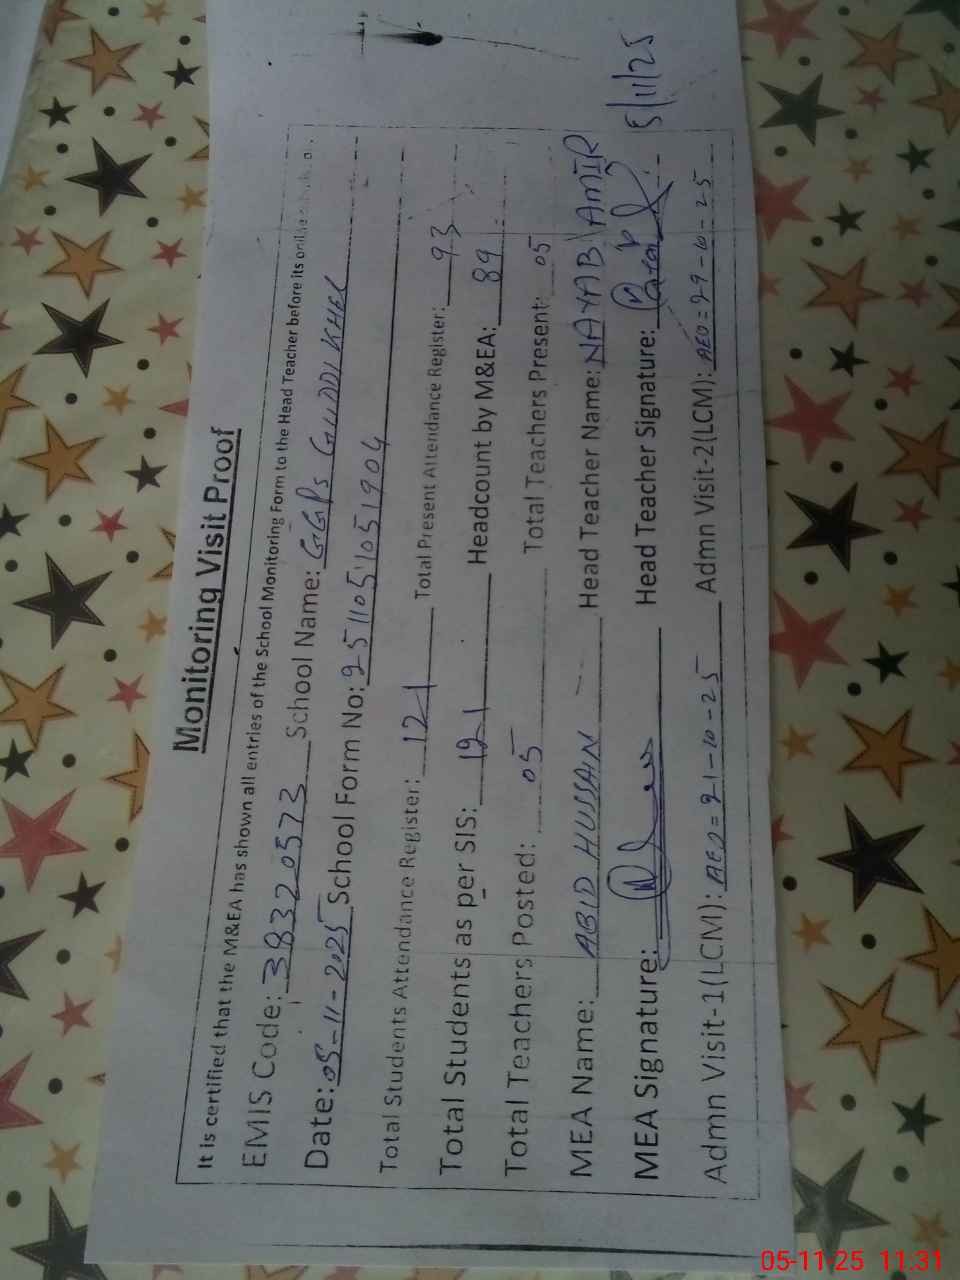 Monitoring Visit Proof
It is certified that the M&EA has shown all entries of the School Monitoring Form to the Head Teacher before its online
EMIS Code: 38320573 School Name: GGPS GUDDI KHEL
Date: 05-11-2025 School Form No: 2511051051904
Total Students Attendance Register: 121 Total Present Attendance Register: 93
Total Students as per SIS: 121 Headcount by M&EA: 89
Total Teachers Posted: 05 Total Teachers Present: 05
MEA Name: ABID HUSSAIN Head Teacher Name: NAYAB AMIR
MEA Signature: Head Teacher Signature: 5/11/25
Admn Visit-1(LCM): AEO = 21-10-25 Admn Visit-2(LCM): AEO = 29-10-25
05-11-25 11:31